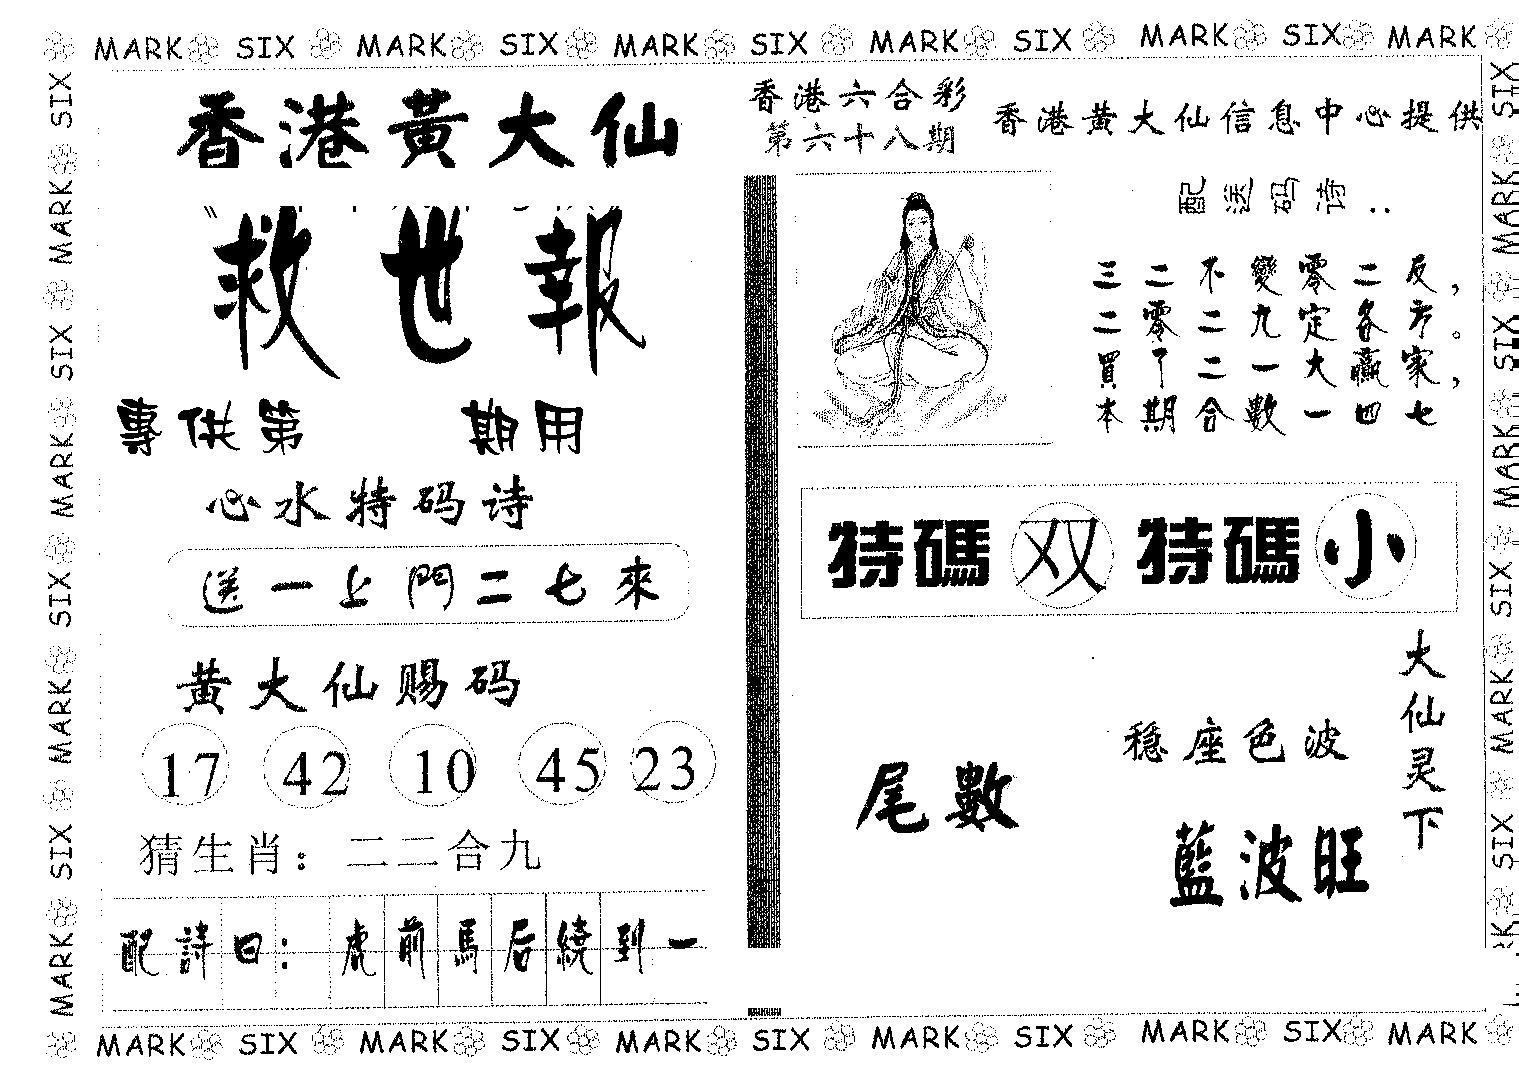 MARK SIX MARK SIX MARK SIX MARK SIX MARK SIX MARK
香港黃大仙
救世報
專供第 期用
心水特码诗
送一上門二七來
黄大仙赐码
17 42 10 45 23
猜生肖：二二合九
配詩曰：虎前馬后繞到一
香港六合彩
第六十八期
香港黄大仙信息中心提供
配送码诗：
三二不變零二反，
二零二九定各方。
買了二一大贏家，
本期合數一四七
特碼双 特碼小
尾數
穏座色波
藍波旺
大仙灵下
MARK SIX MARK SIX MARK SIX MARK SIX MARK SIX MARK
MARK SIX MARK SIX MARK SIX MARK SIX
MARK SIX MARK SIX MARK SIX MARK SIX